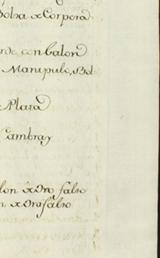 Bolsa de Corpora
con Galon
Manipulo, Bol
de Plata
Cambray
lon de Oro falso
n de Oro falso